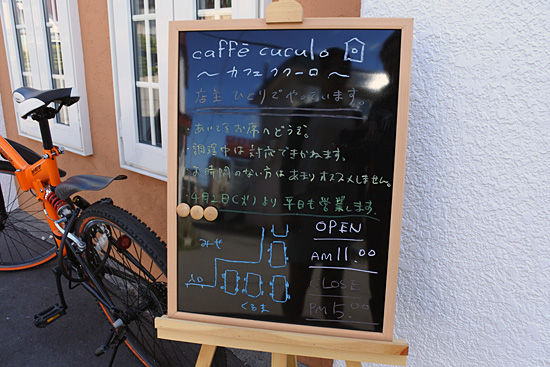 caffè cuculo
～ カフェ クク―ロ ～
店主 ひとりでやっています。
・あいてるお席へどうぞ。
・調理中は対応できかねます。
・お時間のない方はあまりオススメしません。
4月2日(火)より 平日も営業します。
みせ
入口
くるま
OPEN
AM 11.00
CLOSE
PM 5.00